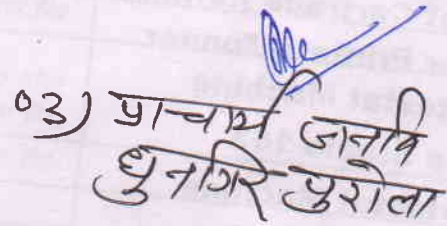 03) प्राचार्य जानवि
धुनगिर पुरोला